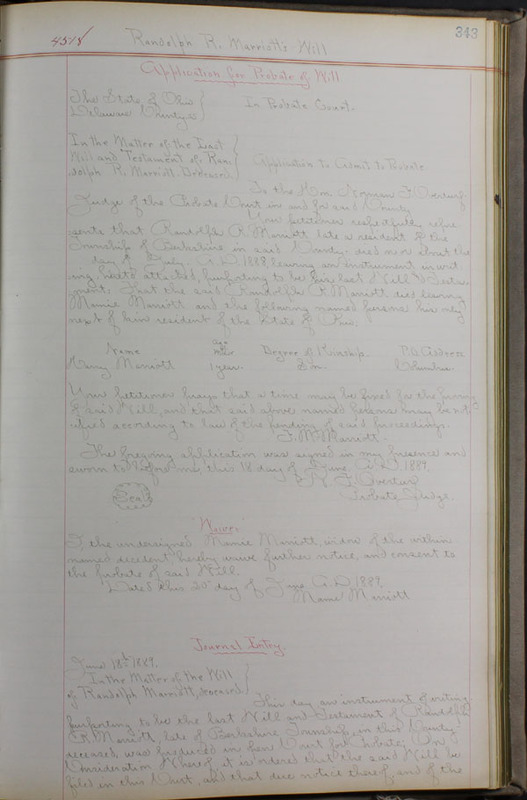 343
4518
Randolph R. Marriott's Will
Application for Probate of Will
The State of Ohio
Delaware County ss
In Probate Court.
In the Matter of the Last
Will and Testament of Ran-
dolph R. Marriott. Deceased
Application to Admit to Probate
To the Hon. Norman F. Overturf
Judge of the Probate Court in and for said County
Your petitioner respectfully repre-
sents that Randolph R. Marriott late a resident of the
Township of Berkshire in said County, died on or about the
day of July A.D. 1888, leaving an instrument in writ-
ing hereto attached, purporting to be his last Will & Testa-
ment. That the said Randolph R. Marriott died leaving
Mamie Marriott and the following named persons his only
next of kin resident of the State of Ohio.
Name Age Degree of Kinship P.O. Address
Marriott 1 year Son Columbus
Your petitioner prays that a time may be fixed for the proving
of said Will, and that said above named persons may be not-
ified according to law of the pending of said proceedings.
F. M. Marriott.
The foregoing application was signed in my presence and
sworn to before me, this 18 day of June A.D. 1889.
N. F. Overturf
Seal
Probate Judge.
Waiver
I, the undersigned Mamie Marriott, widow of the within
named decedent, hereby waive further notice, and consent to
the probate of said Will.
Dated this 20 day of June A.D. 1889.
Mamie Marriott
Journal Entry.
June 18th 1889.
In the Matter of the Will
of Randolph Marriott, deceased
This day an instrument of writing
purporting to be the last Will and Testament of Randolph
R. Marriott late of Berkshire Township, in this County
deceased, was produced in open Court for Probate; On
Consideration Whereof it is ordered that the said Will be
filed in this Court, and that due notice thereof, and of the